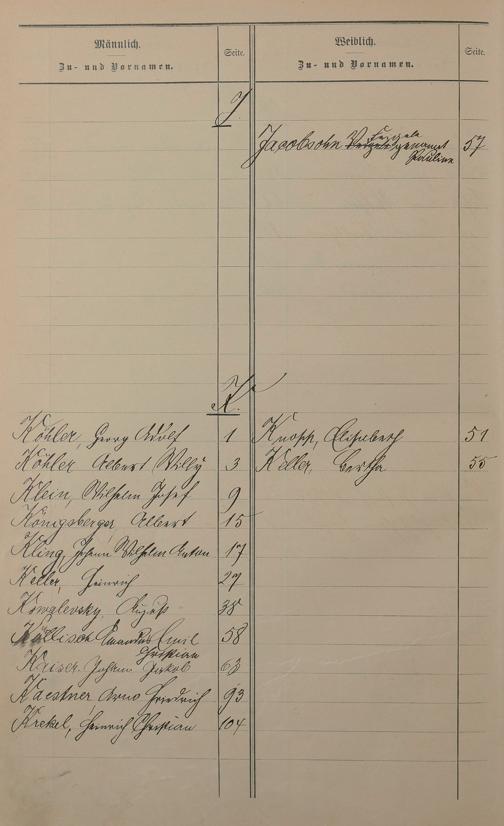 Männlich.
Zu- und Vornamen.
Seite.
Weiblich.
Zu- und Vornamen.
Seite.
J.
Jacobsohn Feigele genannt 57
Pauline
K.
Köhler, Georg Adolf 1
Köhler Albert Willy 3
Klein, Wilhelm Josef 9
Königsberger, Albert 15
Kling, Johann Wilhelm Anton 17
Keller, Heinrich 27
Kowalevsky, August 38
Kallisch Amandus Emil 58
Christian
Kaiser Johann Jakob 63
Kaestner, Arno Friedrich 93
Krekel, Heinrich Christian 104
Knopp, Elisabeth 51
Keller, Bertha 55